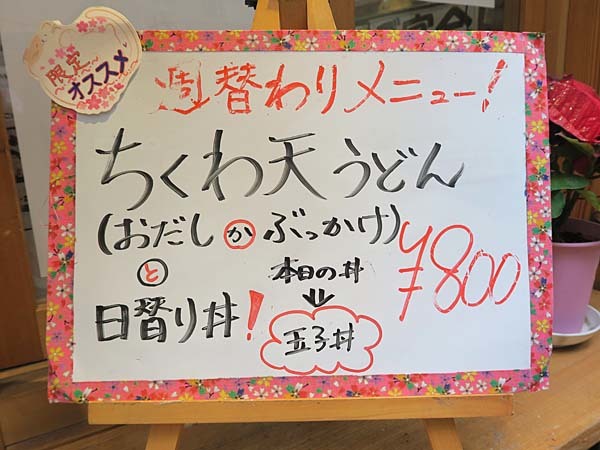 限定
オススメ
週替わりメニュー!
ちくわ天うどん
(おだしかぶっかけ)
¥800
と
日替り丼!
本日の丼
⇓
玉子丼